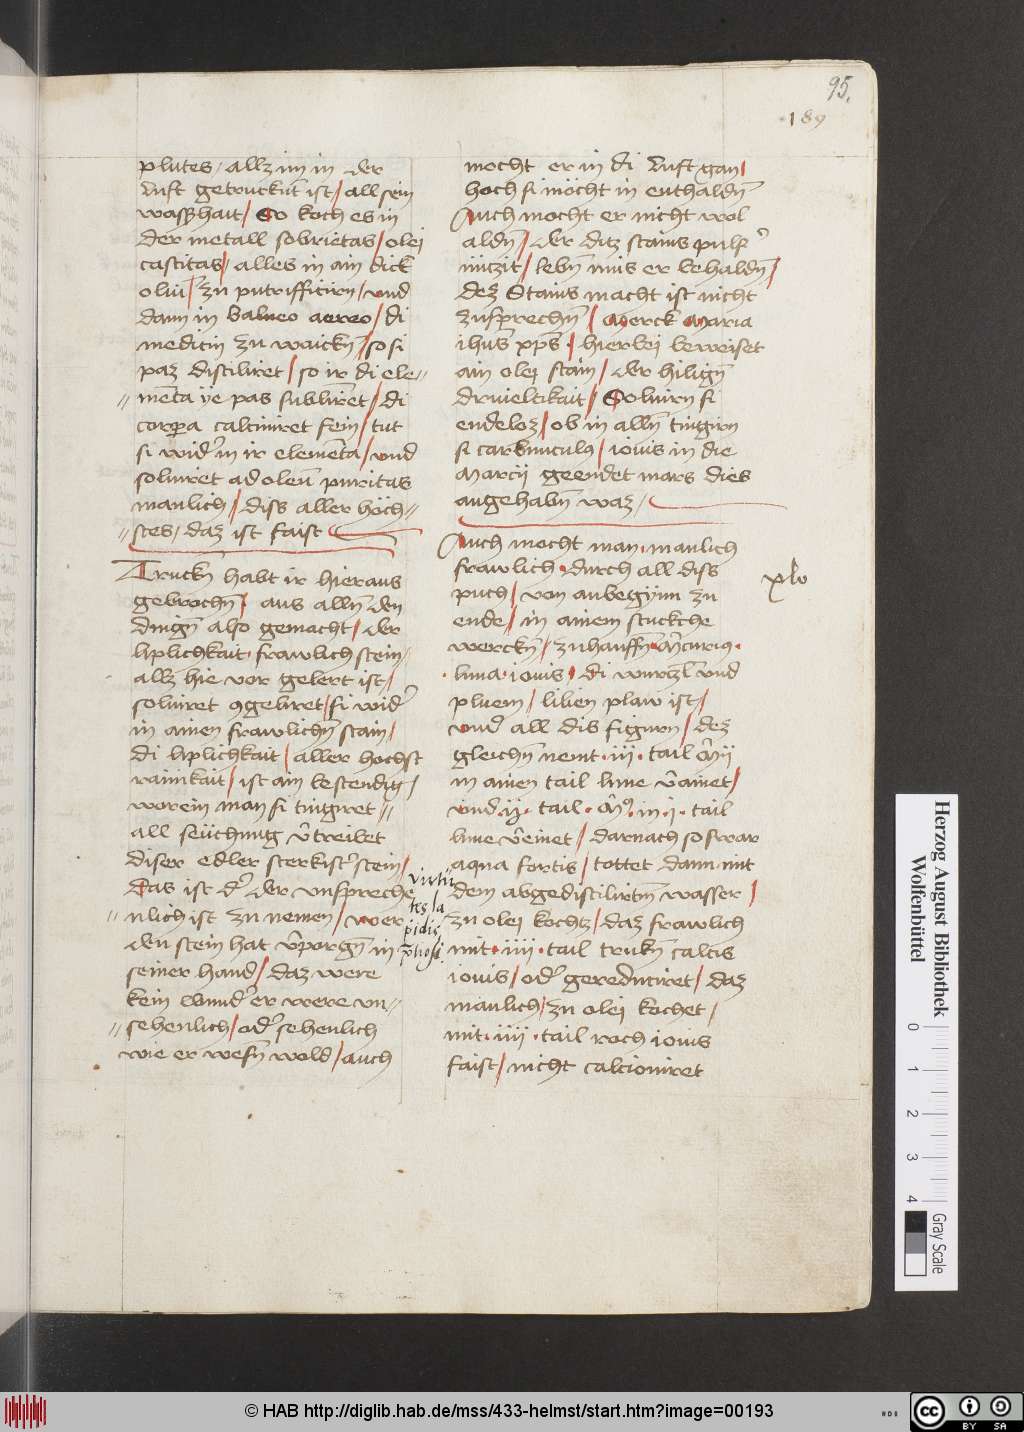 95.
189
plutes / allz im in der
luft getruckn̄t ist / all sein
wasserhait / So koch es in
der metall sobrietas / olej
castitas / alles in ain dick
olui / zu putrifficirn / vnd
dann in balneo aereo / di
medicin zu waickn̄ / so si
paz distiliret / so ir di ele=
=mēta ye pas sublim̄et / di
corpora calciniret sein / tut
si widˀ in ir elemēta / vnd
soluiret ad oleū puritas
manlich / diss aller höch=
=stes / daz ist faist
Truckn habt ir hieraus
gebrochn̄ / aus alln̄ den
dingn̄ also gemacht / der
liplichkait frawlich stein
allz hie vor gelert ist /
soluiret ꝯgeliret / si widˀ
in ainen frawlichn̄ stain /
di liplichkait / aller hochst
rainikait / ist ain bestendig /
worein man si tingiret =
all seüchung v̄treibet
diser edler sterkistˀ stein /
Das ist dˀ der vnspreche
=nlich ist zu nemen / wer
den stein hat v̄porgn̄ in
seiner hand / daz were
kein wundˀ er were vn=
=sehenlich / odˀ sehenlich
wie er wesn̄ wold / auch
virtu
tes la
pidis
phosi
mocht er in di luft gan /
hoch si möcht in enthaldn̄
Auch mocht er nicht wol
aldn̄ / der ditz stains pulfˀ
nüczit / lebn̄ mus er behaldn̄ /
dez Stains macht ist nicht
zusprechn̄ / Merck Maria
ihūs xp̄s / hierbei beweiset
ain olej stain / der hilign̄
driueltikait / Soluirn si
endeloz / ob in alln̄ tingirn
si carbunculꝯ / iouis in die
Marcij geendet mars dies
angehabn̄ waz /
Auch mocht man manlich
frawlich durch all diss
puch / von anbegynn zu
ende / in ainem stuckche
werckn̄ / zuhauffn̄ M̄curiꝯ ·
· luna · iouis / di wurzl̄ vnd
pluem / lilien plaw ist /
vndˀ all dis figurn / dez
gleichn̄ nemt · iij · tail M̄ij
in ainen tail lune v̄ainet /
vnd · ij · tail · M̄ · in · j · tail
lune v̄einet / darnach so frar
aqua fortis / tottet dann mit
dem abgedistilirtn̄ wasser /
zu olej kochtz / daz frawlich
mit · iiij · tail trukn̄ calcis
iouis / odˀ gereduciret / daz
manlich / zu olej kochet /
mit · iiij · tail roch iouis
faist / nicht calcioniret
xlv
Herzog August Bibliothek
Wolfenbüttel
0
1
2
3
4
Gray Scale
© HAB http://diglib.hab.de/mss/433-helmst/start.htm?image=00193
cc
BY
SA